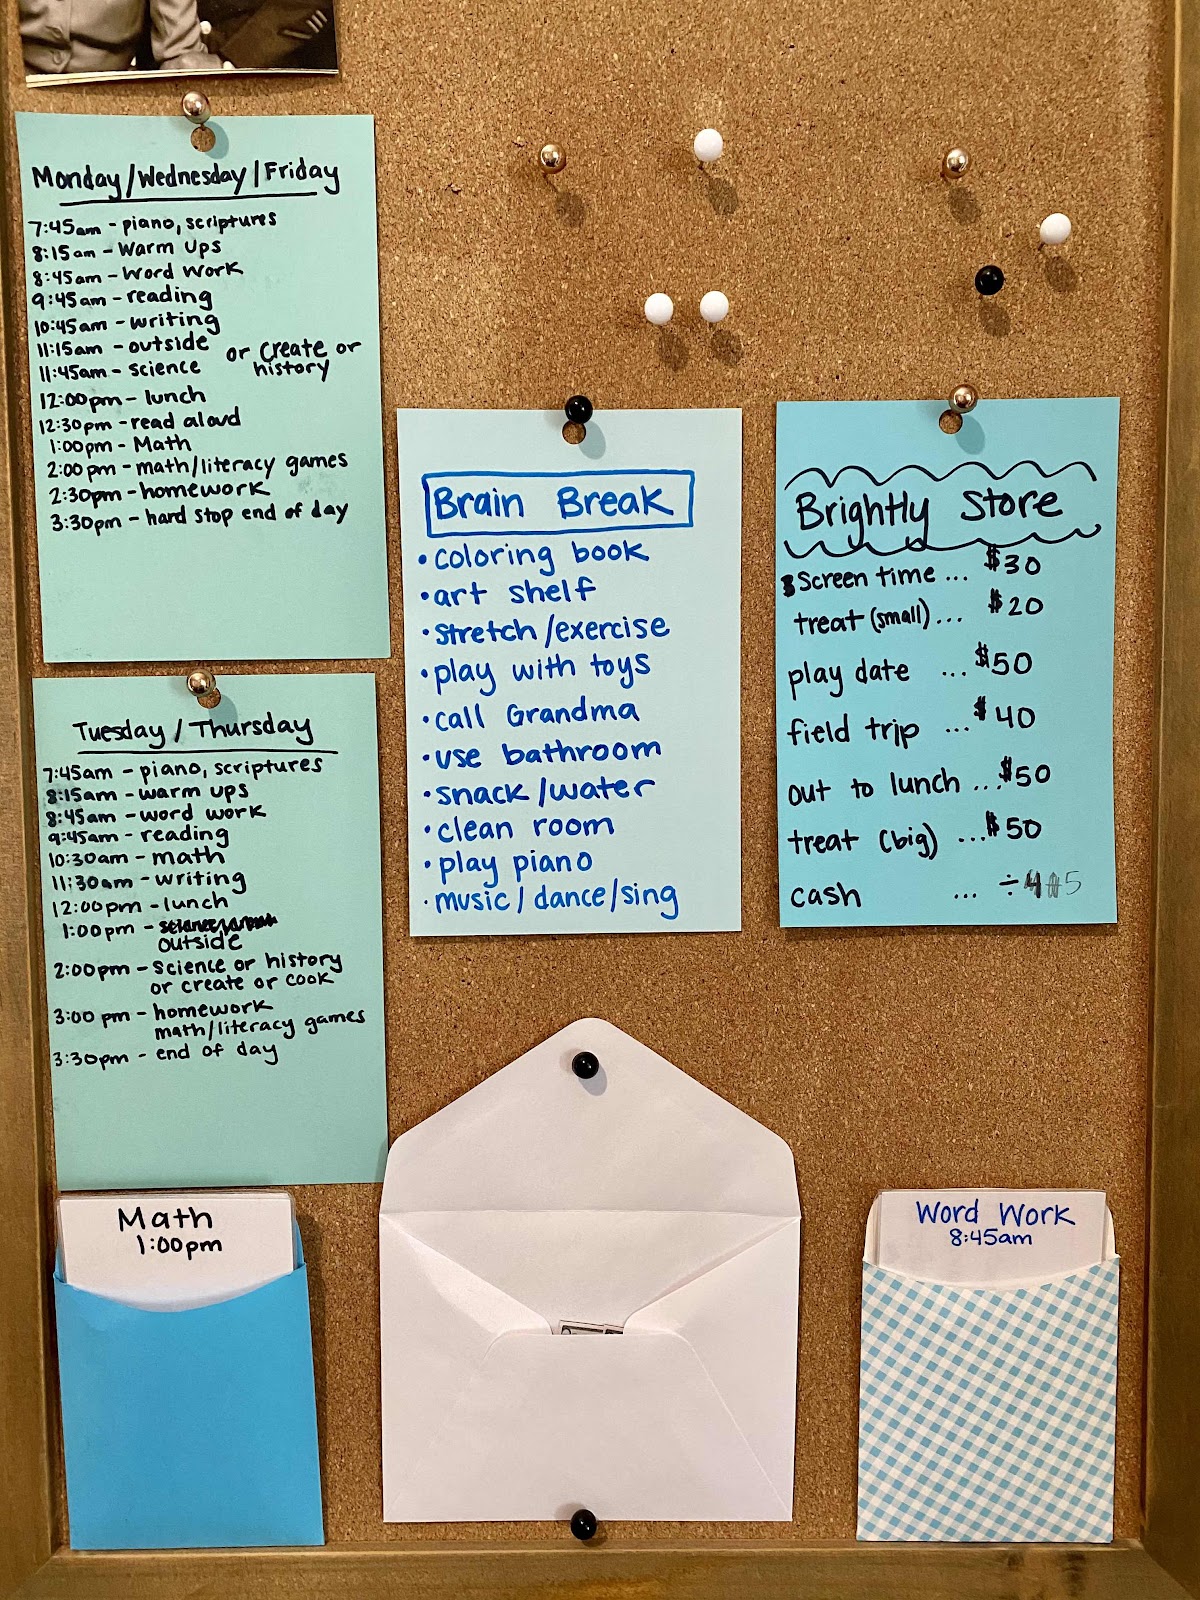 Monday/Wednesday/Friday
7:45am - piano, scriptures
8:15am - Warm Ups
8:45am - Word Work
9:45am - reading
10:45am - writing
11:15am - outside
11:45am - science or create or
history
12:00pm - lunch
12:30pm - read aloud
1:00pm - Math
2:00pm - math/literacy games
2:30pm - homework
3:30pm - hard stop end of day
Tuesday/Thursday
7:45am - piano, scriptures
8:15am - warm ups
8:45am - word work
9:45am - reading
10:30am - math
11:30am - writing
12:00pm - lunch
1:00pm -
outside
2:00pm - science or history
or create or cook
3:00pm - homework
math/literacy games
3:30pm - end of day
Brain Break
• coloring book
• art shelf
• stretch/exercise
• play with toys
• call Grandma
• use bathroom
• snack/water
• clean room
• play piano
• music/dance/sing
Brightly Store
Screen time ... $30
treat (small) ... $20
play date ... $50
field trip ... $40
out to lunch ... $50
treat (big) ... $50
cash ... ÷ 5
Math
1:00pm
Word Work
8:45am